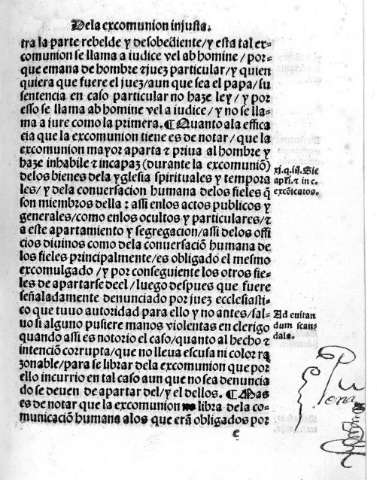 Dela excomunion injusta.
tra la parte rebelde y desobediente/y esta tal ex-
comunion se llama a iudice vel ab homine/por-
que emana de hombre z juez particular/y quien
quiera que fuere el juez/aun que sea el papa/su
sentencia en caso particular no haze ley/y por
esso se llama ab homine vel a iudice/y no se lla-
ma a jure como la primera. ¶ Quanto ala effica
cia que la excomunion tiene es de notar/que la
excomunion mayor aparta z priua al hombre y
haze inhabile z incapaz (durante la excomuniõ)
delos bienes dela yglesia spirituales y tempora
les/y dela conuersacion humana delos fieles q̃
son miembros della: assi enlos actos publicos y
generales/como enlos ocultos y particulares/z
a este apartamiento y segregacion/assi delos offi
cios diuinos como dela conuersaciõ humana de
los fieles principalmente/es obligado el mesmo
excomulgado/y por consiguiente los otros fie-
les de apartarse del/luego despues que fuere
señaladamente denunciado por juez ecclesiasti-
co que tuuo autoridad para ello y no antes/sal-
uo si alguno pusiere manos violentas en clerigo
quando assi es notorio el caso/quanto al hecho z
intenciõ corrupta/que no lleua escusa ni color ra
zonable/para se librar dela excomunion que por
ello incurrio en tal caso aun que no sea denuncia
do se deuen de apartar del/y el dellos. ¶ Mas
es de notar que la excomunion libra dela co-
municaciõ humana alos que erã obligados por
e
xj. q. iij. Sic
apľi. z in c.
excõicatos.
Ad euitan
dum scan
dala.